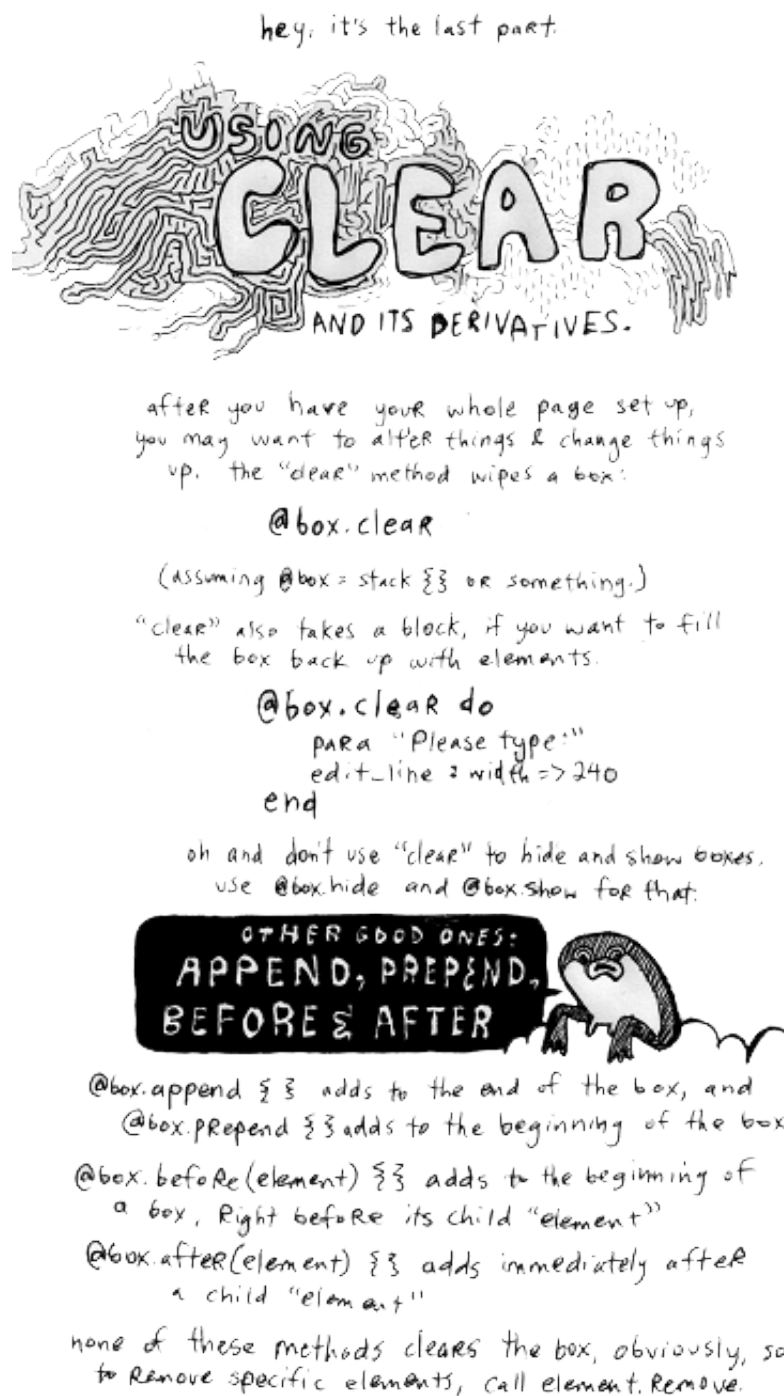 hey, it's the last part.
USING
CLEAR
AND ITS DERIVATIVES.
after you have your whole page set up,
you may want to alter things & change things
up. the "clear" method wipes a box:
@box.clear
(assuming @box = stack {} or something.)
"clear" also takes a block, if you want to fill
the box back up with elements.
@box.clear do
para "Please type:"
edit_line :width => 240
end
oh and don't use "clear" to hide and show boxes.
use @box.hide and @box.show for that.
OTHER GOOD ONES:
APPEND, PREPEND,
BEFORE & AFTER
@box.append { } adds to the end of the box, and
@box.prepend {} adds to the beginning of the box
@box.before(element) {} adds to the beginning of
a box, right before its child "element"
@box.after(element) {} adds immediately after
a child "element"
none of these methods clears the box, obviously, so
to remove specific elements, call element.remove.